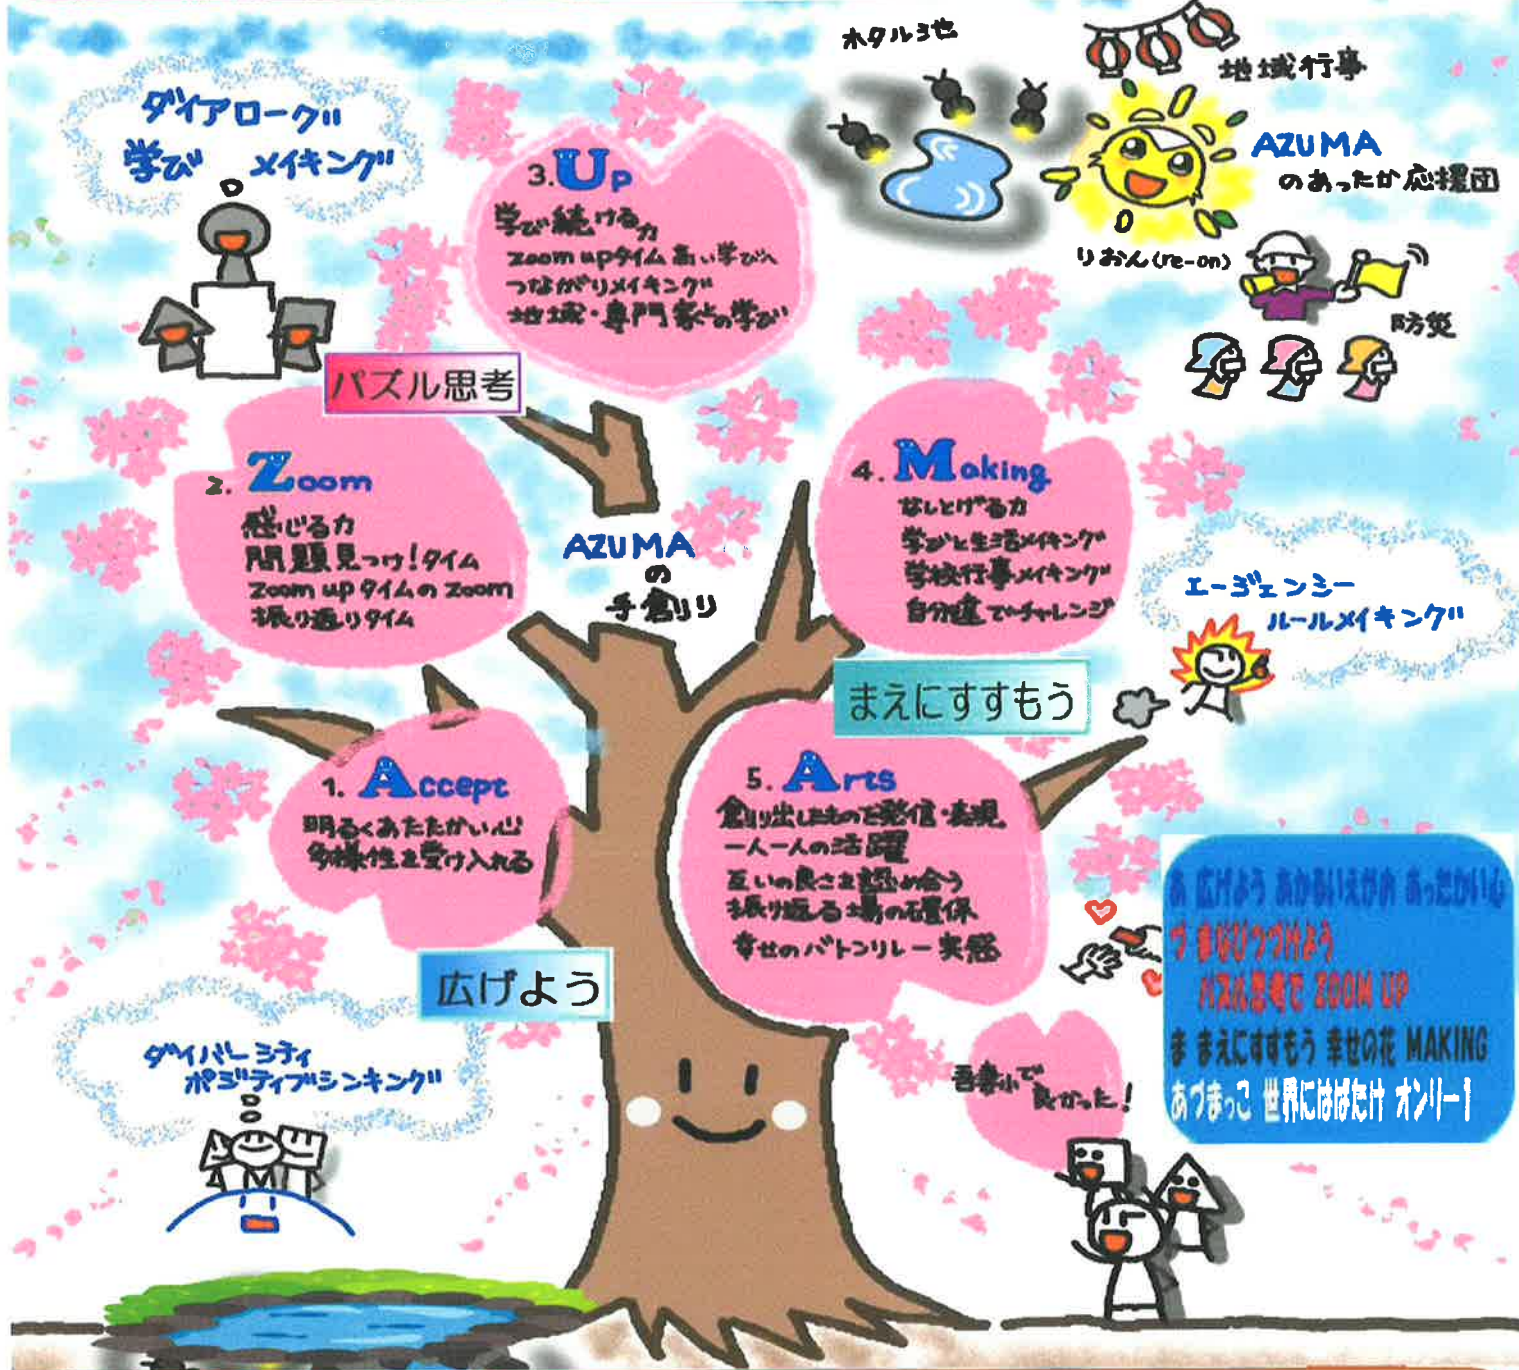 ホタル池
地域行事
AZUMA
のあったか応援団
りおん(re-on)
防災
ダイアローグ
学び メイキング
3.Up
学び続ける力
zoom upタイム 高い学びへ
つながりメイキング
地域・専門家との学び
パズル思考
2. Zoom
感じる力
問題見つけ!タイム
Zoom up タイムの Zoom
振り返りタイム
AZUMA
の
手創り
4. Making
なしとげる力
学びと生活メイキング
学校行事メイキング
自分達でチャレンジ
エージェンシー
ルールメイキング
まえにすすもう
1. Accept
明るくあたたかい心
多様性を受け入れる
広げよう
5. Arts
創り出したもので発信・表現
一人一人の活躍
互いの良さを認め合う
振り返る場の確保
幸せのバトンリレー実感
ダイバーシティ
ポジティブシンキング
吾妻小で
良かった!
あ 広げよう あかるいえがお あったかい心
づ まなびつづけよう
パズル思考で ZOOM UP
ま まえにすすもう 幸せの花 MAKING
あづまっこ 世界にはばたけ オンリー1